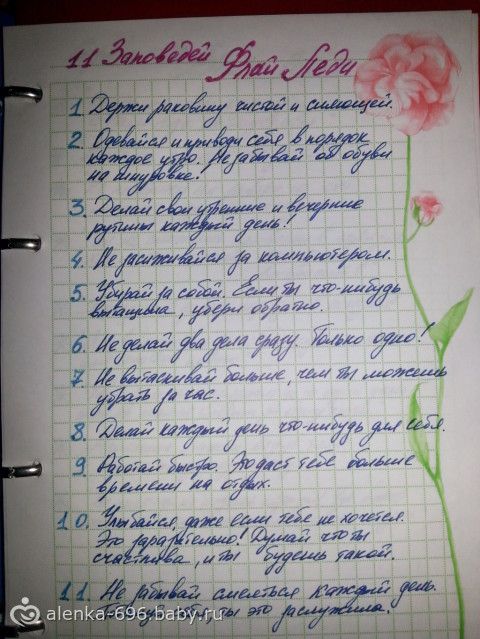 11 Заповедей Флай Леди
1. Держи раковину чистой и сияющей.
2. Одевайся и приводи себя в порядок
каждое утро. Не забывай об обуви
на шнуровке!
3. Делай свои утренние и вечерние
рутины каждый день!
4. Не засиживайся за компьютером.
5. Убирай за собой. Если ты что-нибудь
вытащила, убери обратно.
6. Не делай два дела сразу. Только одно!
7. Не вытаскивай больше, чем ты можешь
убрать за час.
8. Делай каждый день что-нибудь для себя.
9. Работай быстро. Это даст тебе больше
времени на отдых.
10. Улыбайся, даже если тебе не хочется.
Это заразительно! Думай что ты
счастлива, и ты будешь такой.
11. Не забывай смеяться каждый день.
ты это заслужила.
alenka-696.baby.ru